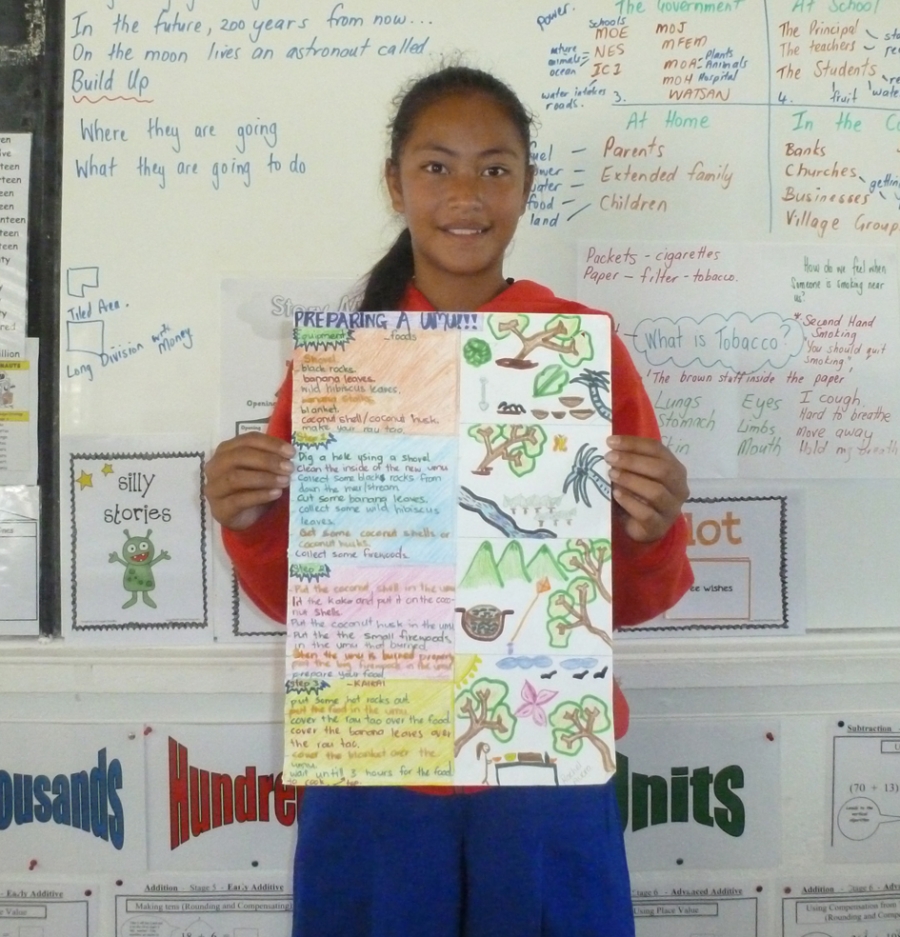 In the future, 200 years from now...
On the moon lives an astronout called
Build Up
Where they are going
What they are going to do
Tiled Area.
Long Division with Money
power.
The Government
schools
MOE
NES
ICI
animals
ocean
water intakes
roads.
3.
MOJ
MFEM
MOA - Plants
Animals
MOH Hospital
WATSAN
At School
The Principal
The teachers
The Students
4.
fruit
At Home
Parents
Extended family
Children
food
land
In the
Banks
Churches
Businesses
Village Group
Packets - cigarettes
Paper - filter - tobacco.
How do we feel when
Someone is smoking near
us?
What is Tobacco?
The brown stuff inside the paper
Second Hand
Smoking
"You should quit
smoking"
Lungs
Stomach
Skin
Eyes
Limbs
Mouth
I cough,
Hard to breathe
Move away
Hold my breath
silly
stories
PREPARING A UMU!!!
Equipment
foods
Shovel
black rocks
banana leaves
wild hibiscus leaves.
blanket
coconut shell/coconut husk.
make your rau tao.
Step 1
Dig a hole using a shovel
Clean the inside of the new umu
Collect some blacks rocks from
down the river/stream
Cut some banana leaves.
collect some wild hibiscus
leaves.
Get some coconut shells or
coconut husks.
Collect some firewoods.
Step 2
Put the coconut shell in the umu
lit the kaka and put it on the coco-
nut shells.
Put the coconut husk in the umu
Put the the small firewoods
in the umu that burned.
When the umu is burned
prepare your food
Step 3
- KAIKAI
put some hot rocks out
put the food in the umu.
cover the rau tao over the food
cover the banana leaves over
the rau tao.
cover the blanket over the
umu.
wait until 3 hours for the food
to cook
ousands
Hundre
Units
lot
ee wishes
Subtraction
(70 + 13)
Early Additive
Addition - Stage 5 - Early Additive
Making tens (Rounding and Compensating)
Stage 6 - Advanced Additive
Using Place Value
Addition - Stage 6 - Adva
Using Compensation from
(Rounding and Comp